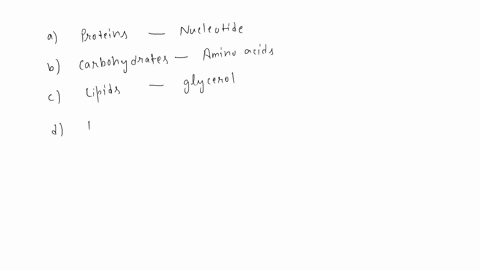 a) Proteins — Nucleotide
b) Carbohydrates — Amino acids
c) Lipids — glycerol
d)